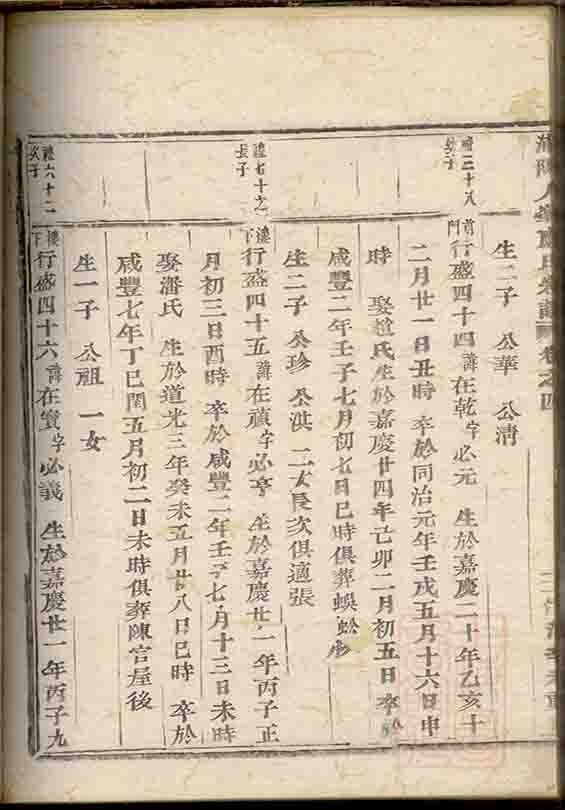 生二子 公華 公清
禮三十八
長子
前門 行盛四十四諱在乾字必元 生於嘉慶二十年乙亥十
二月廿一日丑時 卒於同治元年壬戌五月十六日申
時 娶趙氏生於嘉慶廿四年己卯二月初五日 卒
咸豐二年壬子七月初七日巳時俱葬蜈蚣
生二子 公珍 公淇 二女長次俱適張
禮七十之
長子
樓下 行盛四十五諱在禎字必亨 生於嘉慶廿一年丙子正
月初三日酉時 卒於咸豐二年壬子七月十三日未時
娶潘氏 生於道光三年癸未五月廿八日巳時 卒於
咸豐七年丁巳閏五月初二日未時俱葬陳宫屋後
生一子 公祖 一女
禮六十二
次子
樓下 行盛四十六諱在寳字必義 生於嘉慶廿一年丙子九